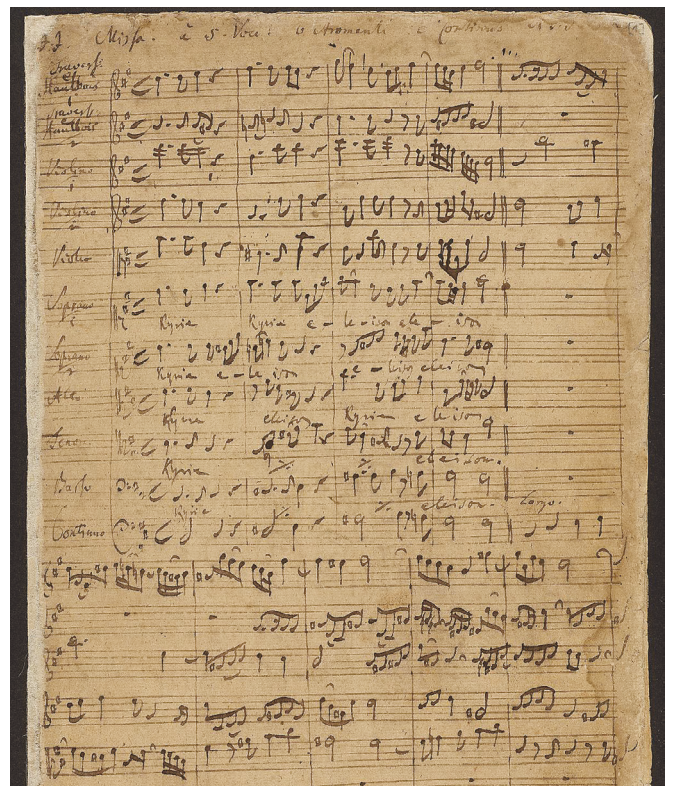 J. J. Missa. à 5. Voci. 6 Stromenti e Continuo
Traversi
et
Hautbois
1
Travers.
Hautbois
2
Violino
1
Violino
2
Viola
Soprano
1
Kyrie Kyrie e - le - ison ele - ison
Soprano
2
Kyrie e - le ison e - leison eleison
Alto
Kyrie eleison Kyrie eleison
Tenor
Kyrie eleison.
Basso
Kyrie eleison. Largo.
Continuo